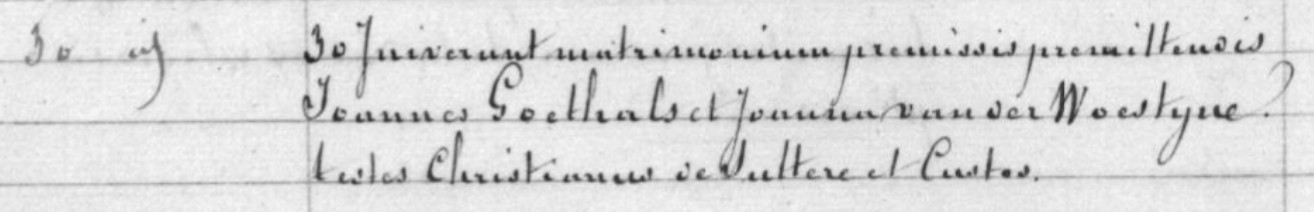 30 30 Iniverunt matrimonium premissis premittendis
Joannes Goethals et Joanna vander Woestyne.
testes Christianus de Sultere et Custos.